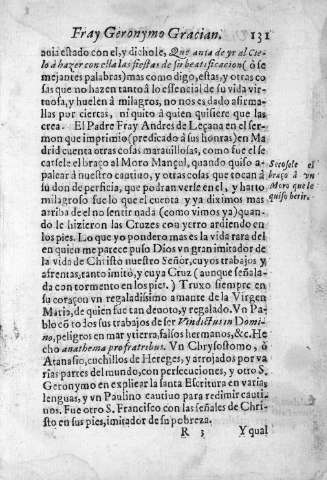 Fray Geronymo Gracian. 131
auia estado con el, y dichole, Que auia de yr al Cie-
lo à hazer con ella las fiestas de su beatificacion (ò se
mejantes palabras) mas como digo, estas, y otras co
sas que no hazen tanto à lo essencial de su vida vir-
tuosa, y huelen à milagros, no nos es dado afirma-
llas por ciertas, ni quito à quien quisiere que las
crea. El Padre Fray Andres de Leçana en el ser-
mon que imprimio (predicado à sus honras) en Ma
drid cuenta otras cosas marauillosas, como fue el se
carsele el braço al Moro Mançol, quando quiso a-
palear à nuestro cautiuo, y otras cosas que tocan à
su don de perficia, que podran verle en el, y harto
milagroso fue lo que el cuenta y ya diximos mas
arriba de el no sentir nada (como vimos ya) quan-
do le hizieron las Cruzes con yerro ardiendo en
los pies. Lo que yo pondero mas es la vida rara del
en quien me parece puso Dios vn gran imitador de
la vida de Christo nuestro Señor, cuyos trabajos y
afrentas, tanto imitó, y cuya Cruz (aunque señala-
da con tormento en los pies.) Truxo siempre en
su coraçon vn regaladissimo amante de la Virgen
Maria, de quien fue tan deuoto, y regalado. Vn Pa-
blo cō to los sus trabajos de ser Vindictus in Domi-
no, peligros en mar y tierra, falsos hermanos, &c. He
cho anathema pro fratribus. Vn Chrysostomo, ò
Atanasio, cuchillos de Hereges, y arrojados por va
rias partes del mundo, con persecuciones, y otro S.
Geronymo en explicar la santa Escritura en varias
lenguas, y vn Paulino cautiuo para redimir cauti-
nos. Fue otro S. Francisco con las señales de Chri-
sto en sus pies, imitador de su pobreza.
R 3 Y qual
Secosele el
braço à vn
Moro que le
quiso herir.